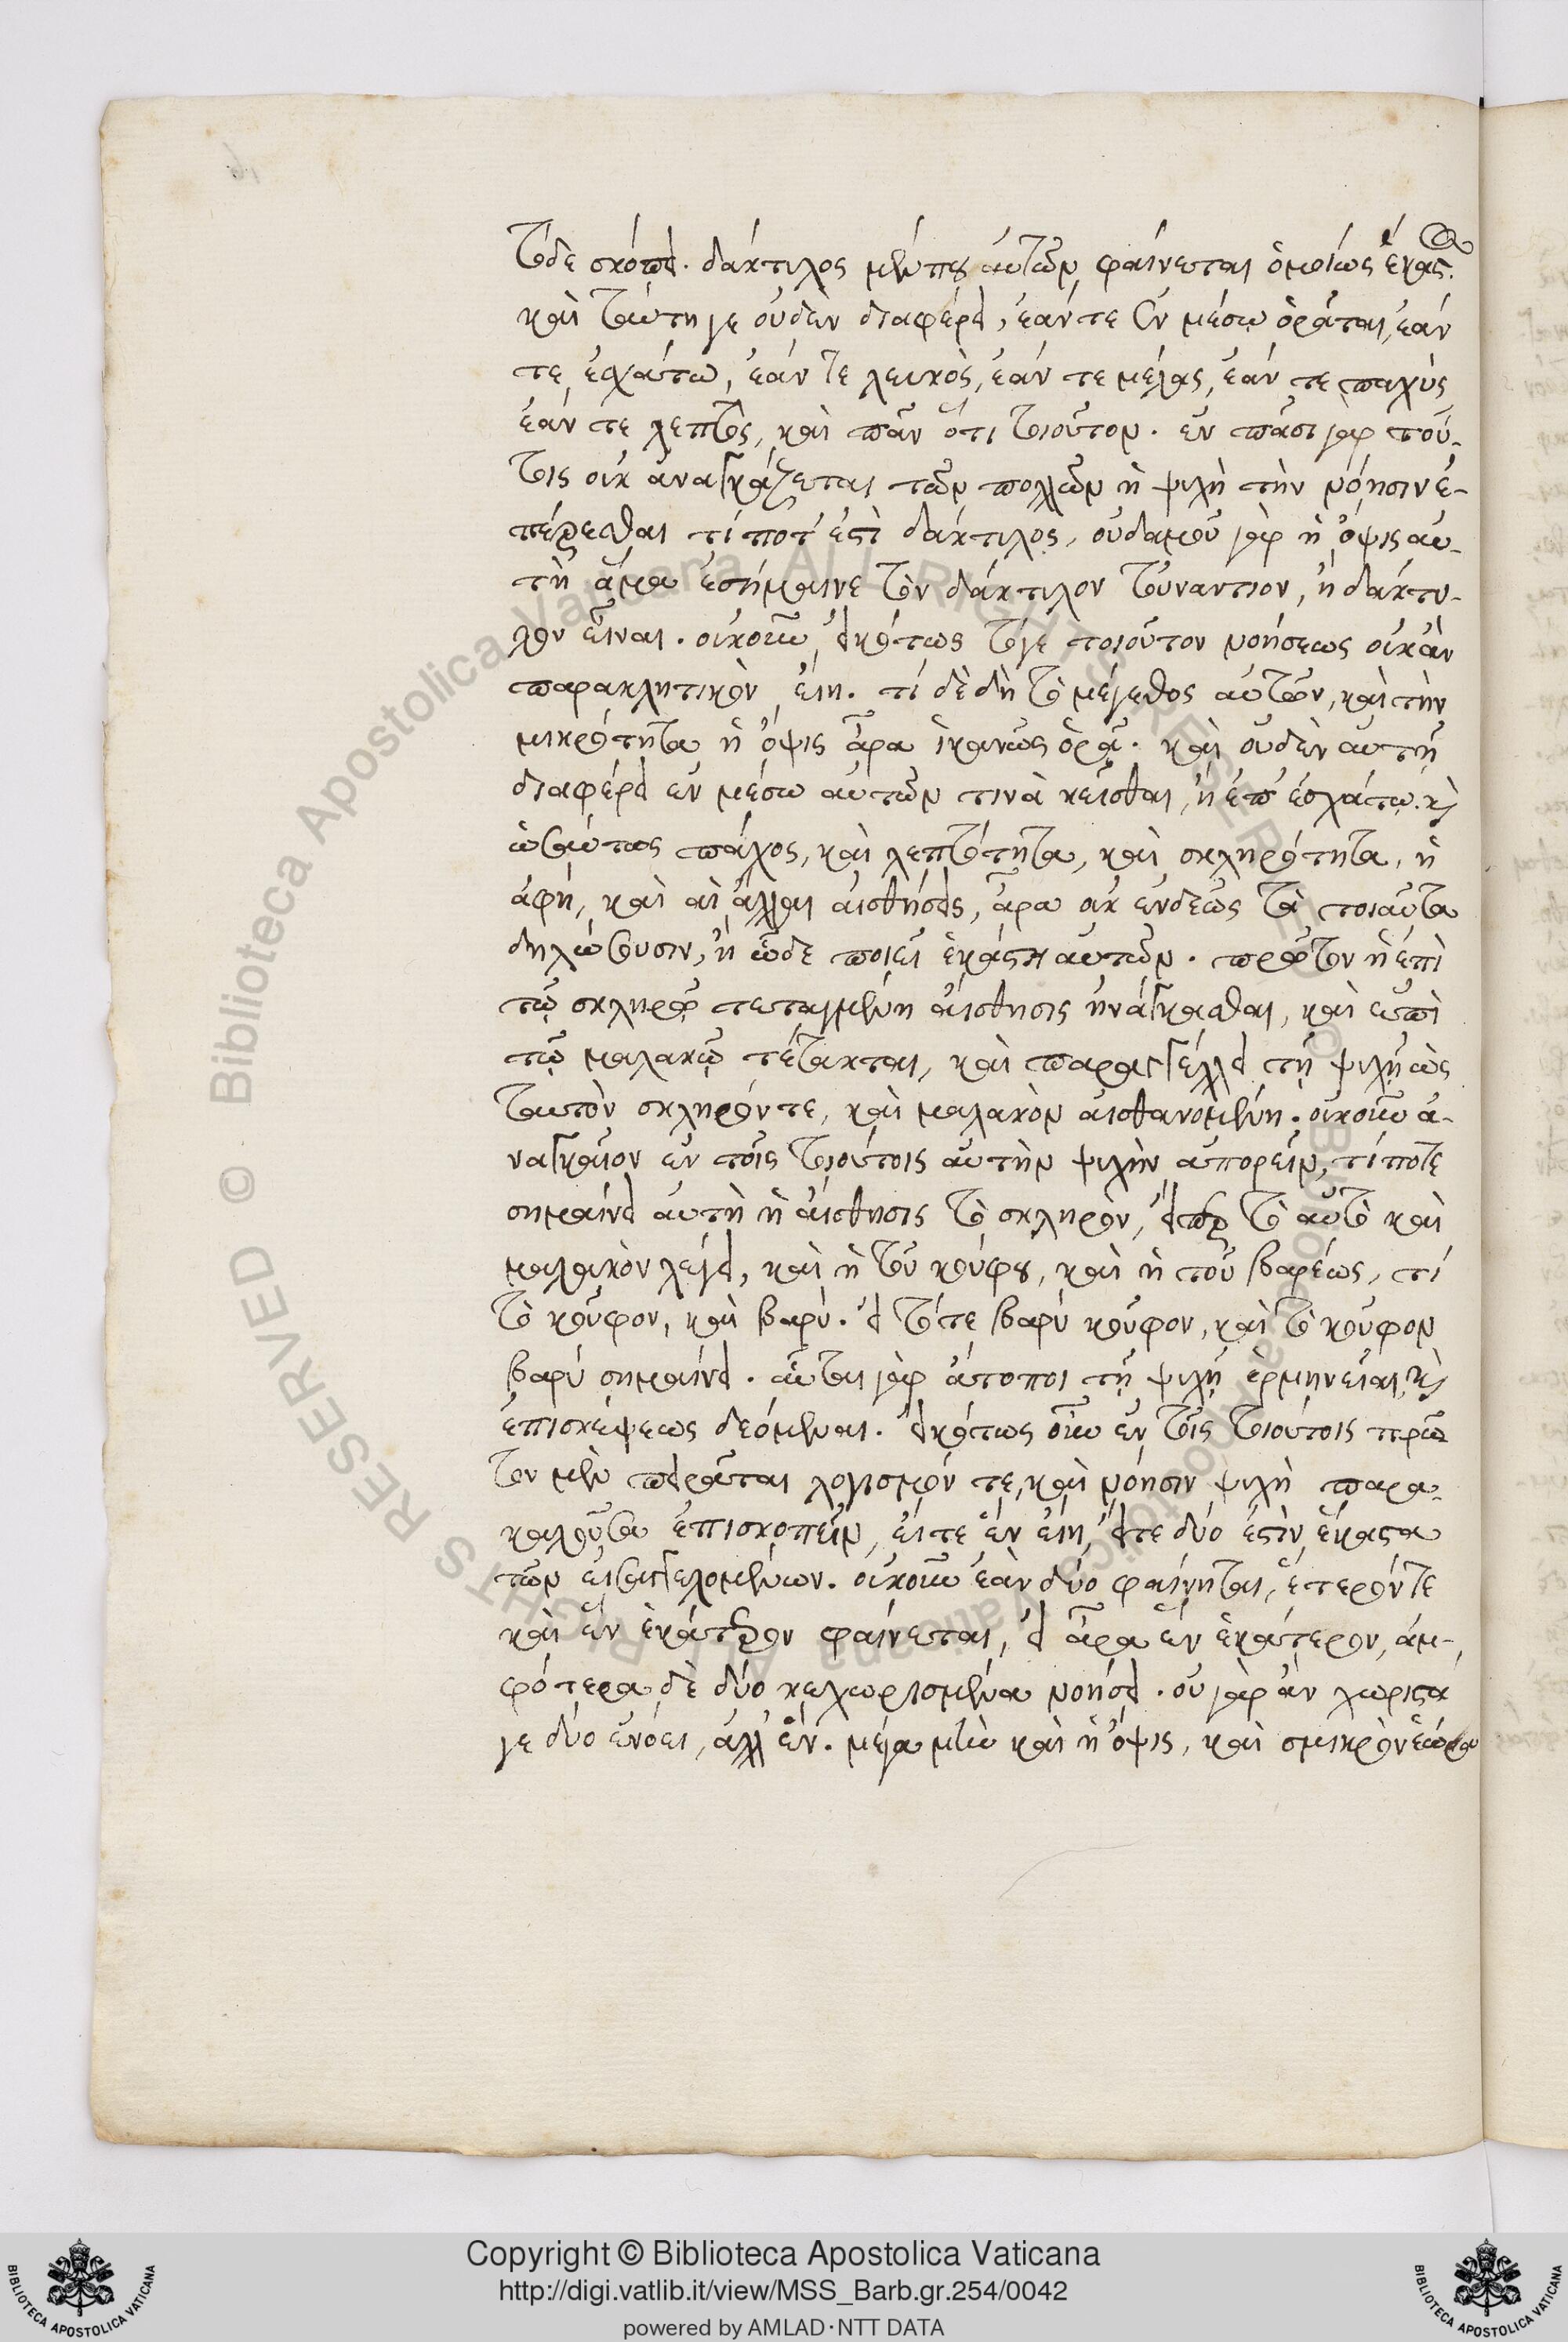 τόδε σκόπει. δάκτυλος μέν που αὐτῶν φαίνεται ὁμοίως ἕκαστος.
καὶ ταύτη γε οὐδὲν διαφέρει, ἐάν τε ἐν μέσω ὁρᾶται, ἐάν
τε ἐσχάτω, ἐάν τε λευκὸς, ἐάν τε μέλας, ἐάν τε παχὺς
ἐάν τε λεπτὸς, καὶ πᾶν ὅτι τοιοῦτον. ἐν πᾶσι γὰρ τού-
τοις οὐκ ἀναγκάζεται τῶν πολλῶν ἡ ψυχὴ τὴν νόησιν ἐ-
πέρεσθαι τί ποτ' ἐστὶ δάκτυλος, οὐδαμοῦ γὰρ ἡ ὄψις αὐ-
τῇ ἅμα ἐσήμαινε τὸν δάκτυλον τοὐναντίον, ἢ δάκτυ-
λον εἶναι. οὐκοῦν εἰκότως τόγε τοιοῦτον νοήσεως οὐκ ἂν
παρακλητικὸν εἴη. τί δὲ δὴ τὸ μέγεθος αὐτῶν, καὶ τὴν
μικρότητα ἡ ὄψις ἆρα ἱκανῶς ὁρᾷ. καὶ οὐδὲν αὐτῇ
διαφέρει ἐν μέσω αὐτῶν τινὰ κεῖσθαι, ἢ ἐπ' ἐσχάτω. καὶ
ὡσαύτως πάχος, καὶ λεπτότητα, καὶ σκληρότητα, ἡ
ἁφή, καὶ αἱ ἄλλαι αἰσθήσεις, ἆρα οὐκ ἐνδεῶς τὰ τοιαῦτα
δηλώουσιν, ἢ ὧδε ποιεῖ ἑκάστη αὐτῶν. πρῶτον ἡ ἐπὶ
τῷ σκληρῷ τεταγμένη αἴσθησις ἠνάγκασθαι, καὶ ἐπὶ
τῷ μαλακῷ τέτακται, καὶ παραγγέλλει τῇ ψυχῇ ὡς
ταυτὸν σκληρόν τε, καὶ μαλακὸν αἰσθανομένη. οὐκοῦν ἀ-
ναγκαῖον ἐν τοῖς τοιούτοις αὐτὴν ψυχὴν ἀπορεῖν, τί ποτε
σημαίνει αὐτὴ ἡ αἴσθησις τὸ σκληρὸν, εἴπερ τὸ αὐτὸ καὶ
μαλακὸν λέγει, καὶ ἡ τοῦ κούφου, καὶ ἡ τοῦ βαρέως, τί
τὸ κοῦφον, καὶ βαρύ. εἰ τό τε βαρὺ κοῦφον, καὶ τὸ κοῦφον
βαρὺ σημαίνει. αὗται γὰρ ἄτοποι τῇ ψυχῇ ἑρμηνεῖαι, καὶ
ἐπισκέψεως δεόμεναι. εἰκότως οὖν ἐν τοῖς τοιούτοις πρῶ
τον μὲν πειρᾶται λογισμόν τε, καὶ νόησιν ψυχὴ παρα-
καλοῦσα ἐπισκοπεῖν, εἴτε ἓν εἴη, εἴτε δύο ἐστὶν ἕκαστα
τῶν εἰσαγγελομένων. οὐκοῦν ἐὰν δύο φαίνηται, ἕτερόν τε
καὶ ἓν ἑκάτερον φαίνεται, εἰ ἄρα ἓν ἑκάτερον, ἀμ-
φότερα δὲ δύο κεχωρισμένα νοήσει. οὐ γὰρ ἂν χωριστά
γε δύο ἐνόει, ἀλλ' ἕν. μέγα μὲν καὶ ἡ ὄψις, καὶ σμικρὸν ἑώρα
Biblioteca Apostolica Vaticana ALL RIGHTS RESERVED ©
Copyright © Biblioteca Apostolica Vaticana
http://digi.vatlib.it/view/MSS_Barb.gr.254/0042
powered by AMLAD·NTT DATA
BIBLIOTECA APOSTOLICA VATICANA
BIBLIOTECA APOSTOLICA VATICANA